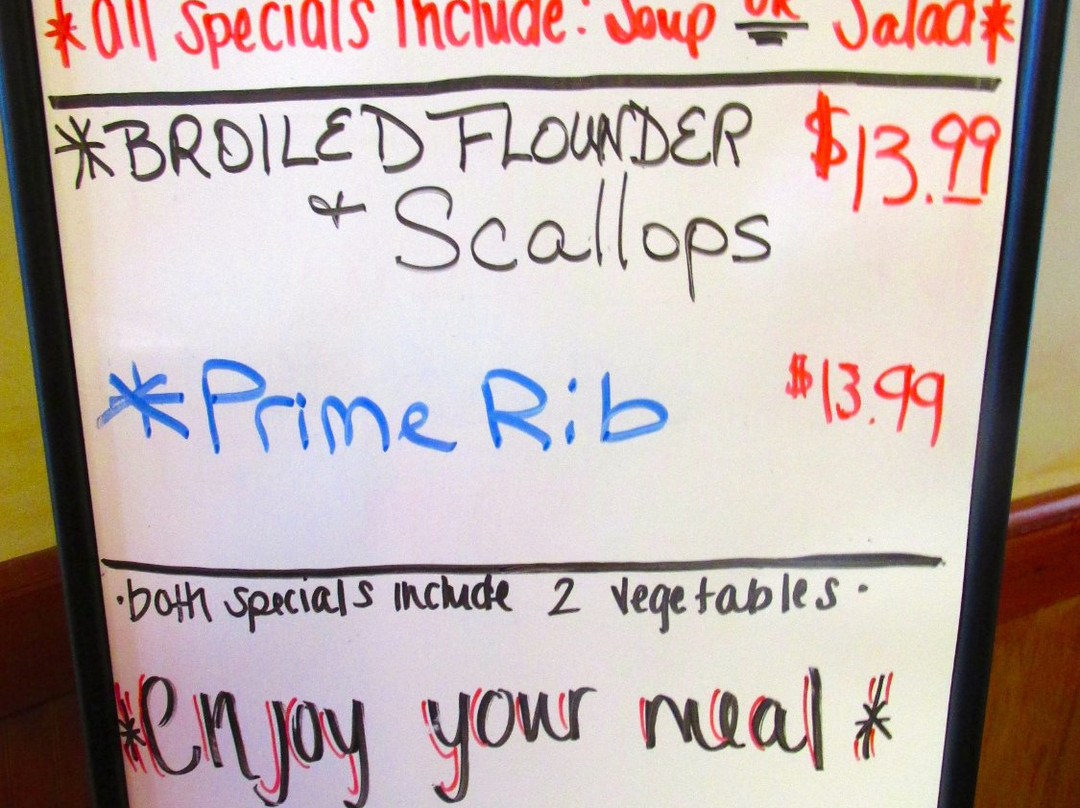 *All Specials Include: Soup OR Salad*
*BROILED FLOUNDER $13.99
& Scallops
*Prime Rib $13.99
·both specials include 2 vegetables·
*enjoy your meal*